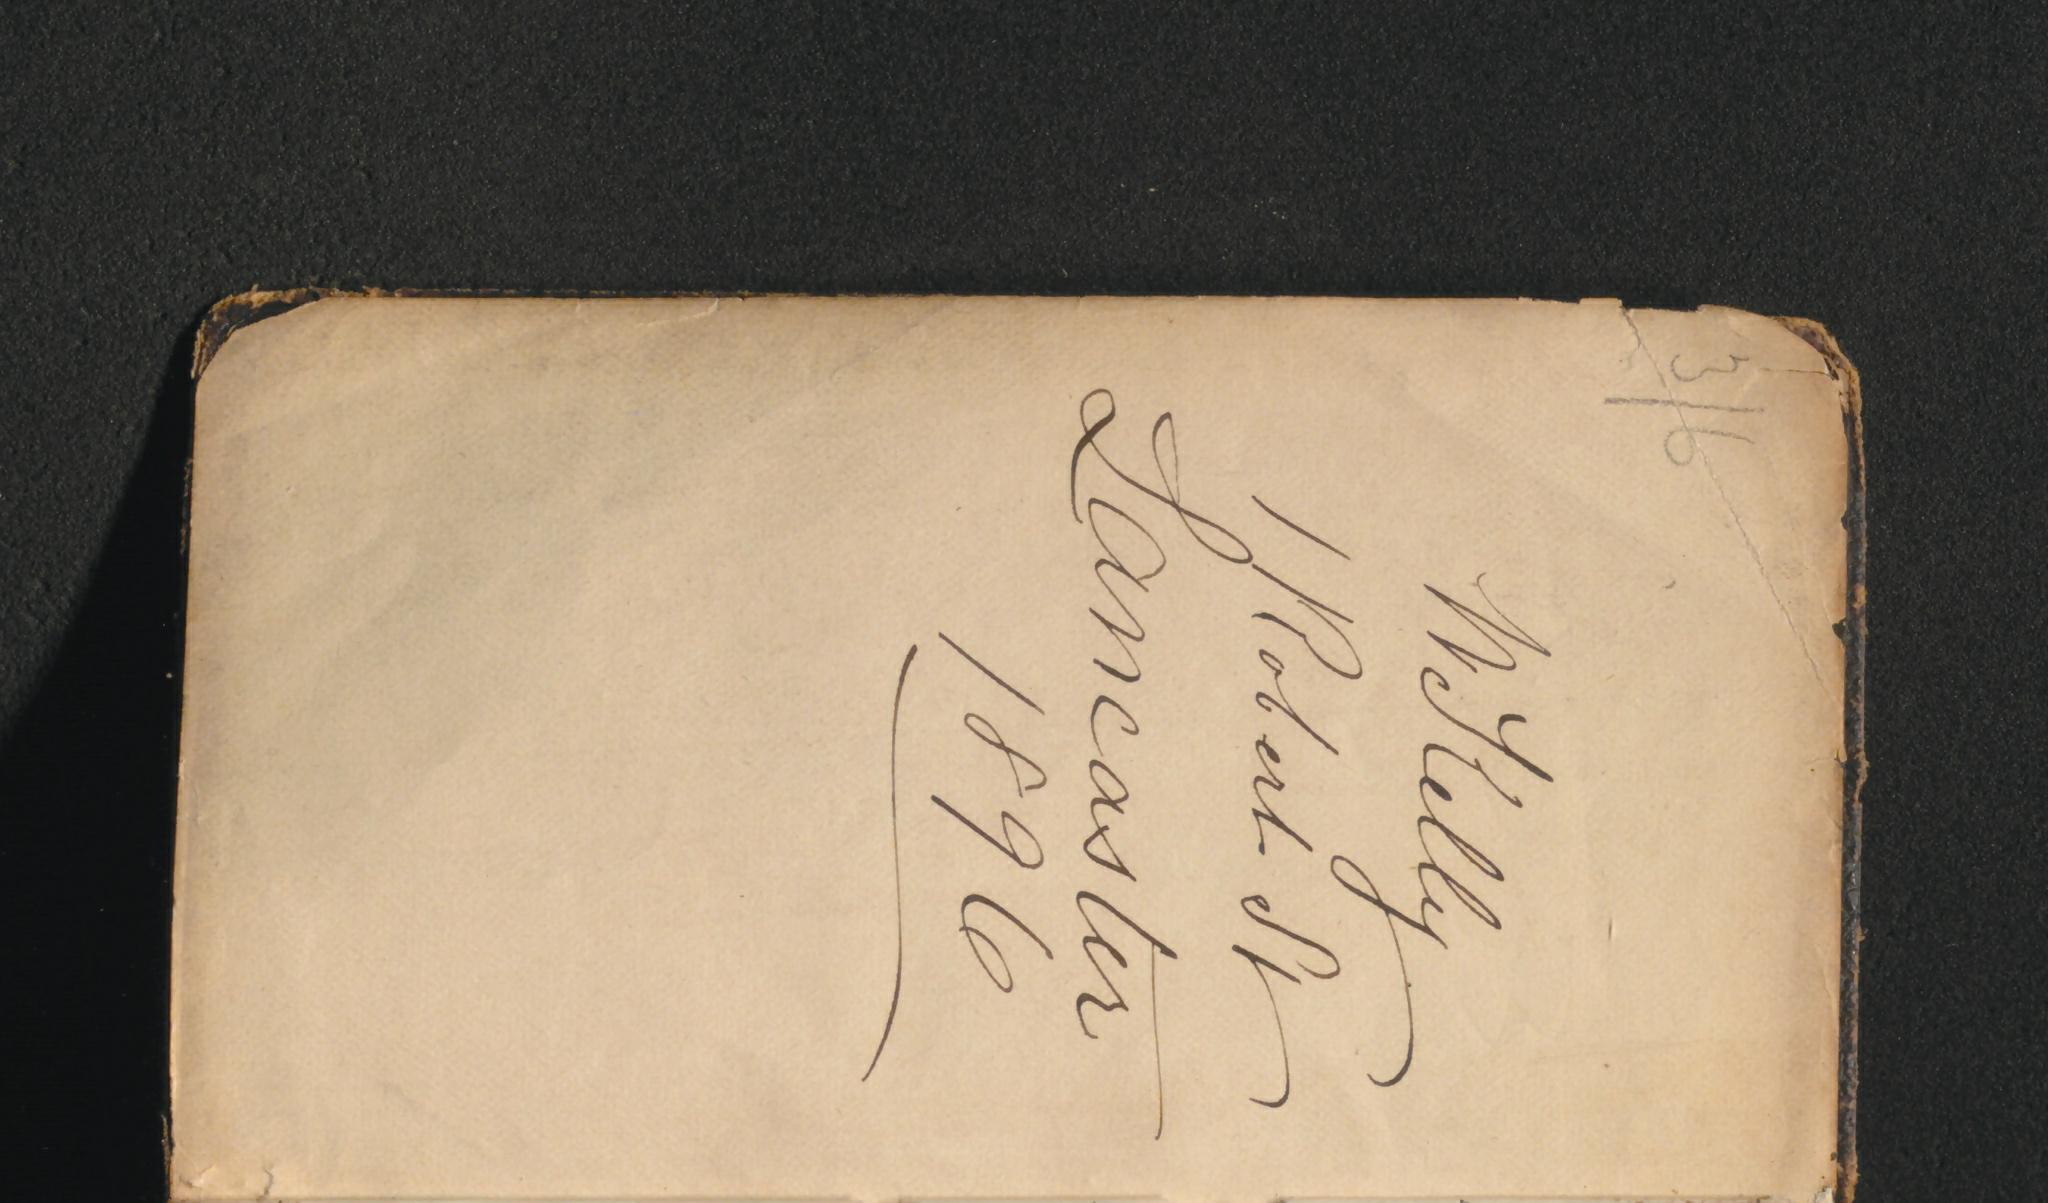 3/6
W. Kelly
1 Robert St
Lancaster
1896